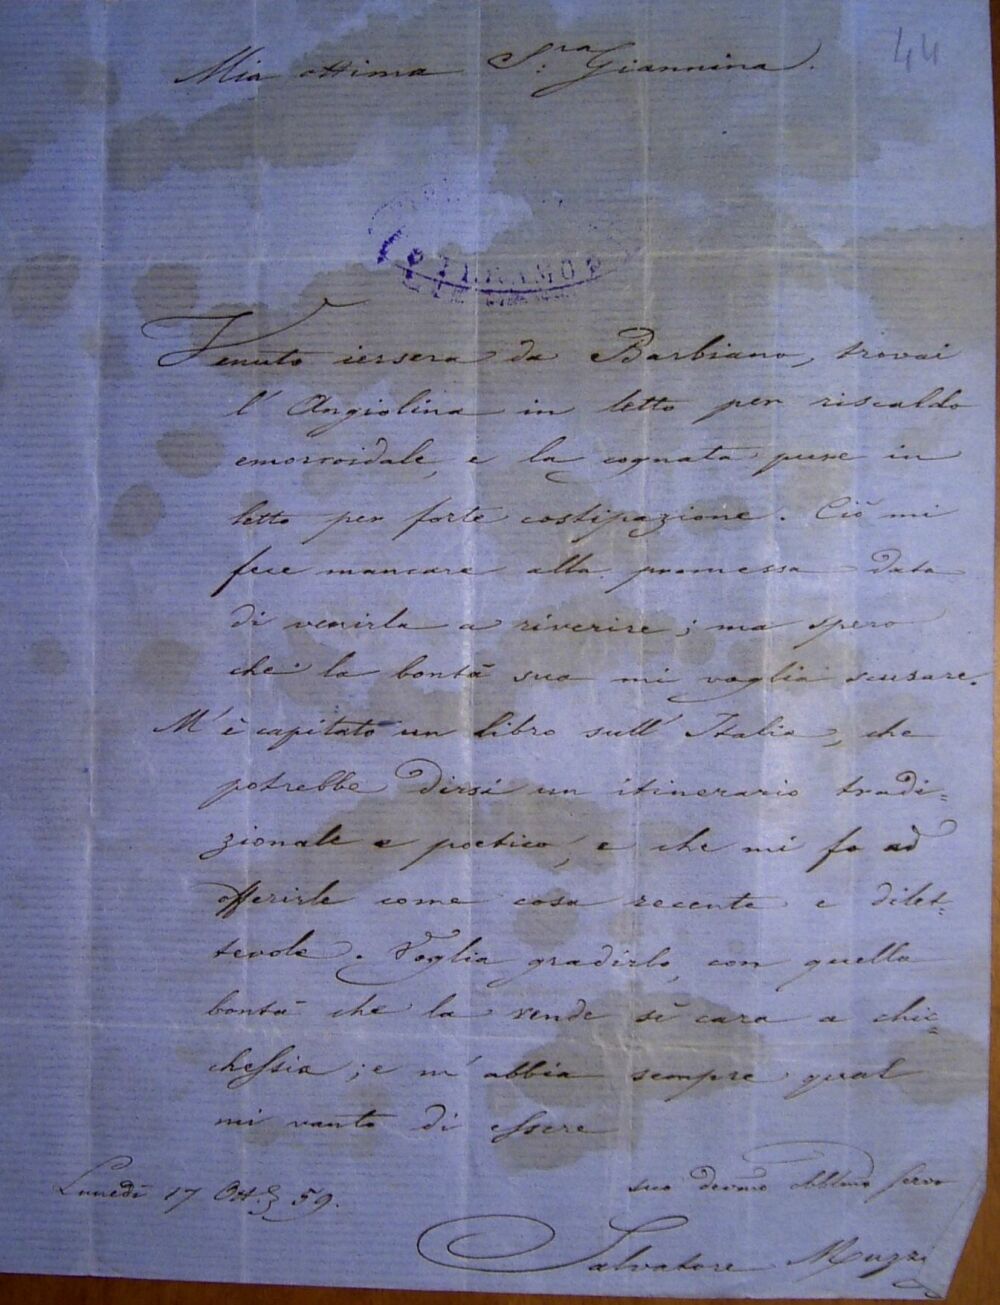 44
Mia ottima S.ra Giannina.
TERAMO
Venuto iersera da Barbiano, trovai
l'Angiolina in letto per riscaldo
emorroidale, e la cognata pure in
letto per forte costipazione. Ciò mi
fece mancare alla promessa data
di venirla a riverire; ma spero
che la bontà sua mi voglia scusare.
M'è capitato un libro sull'Italia, che
potrebbe dirsi un itinerario tradi=
zionale e poetico, e che mi fo ad
offerirle come cosa recente e dilet=
tevole. Voglia gradirlo con quella
bontà che la rende sì cara a chic=
chessia; e m'abbia sempre qual
mi vanto di essere
suo devmo obblmo servo
Lunedì 17 Ott.e 59.
Salvatore Muzzi